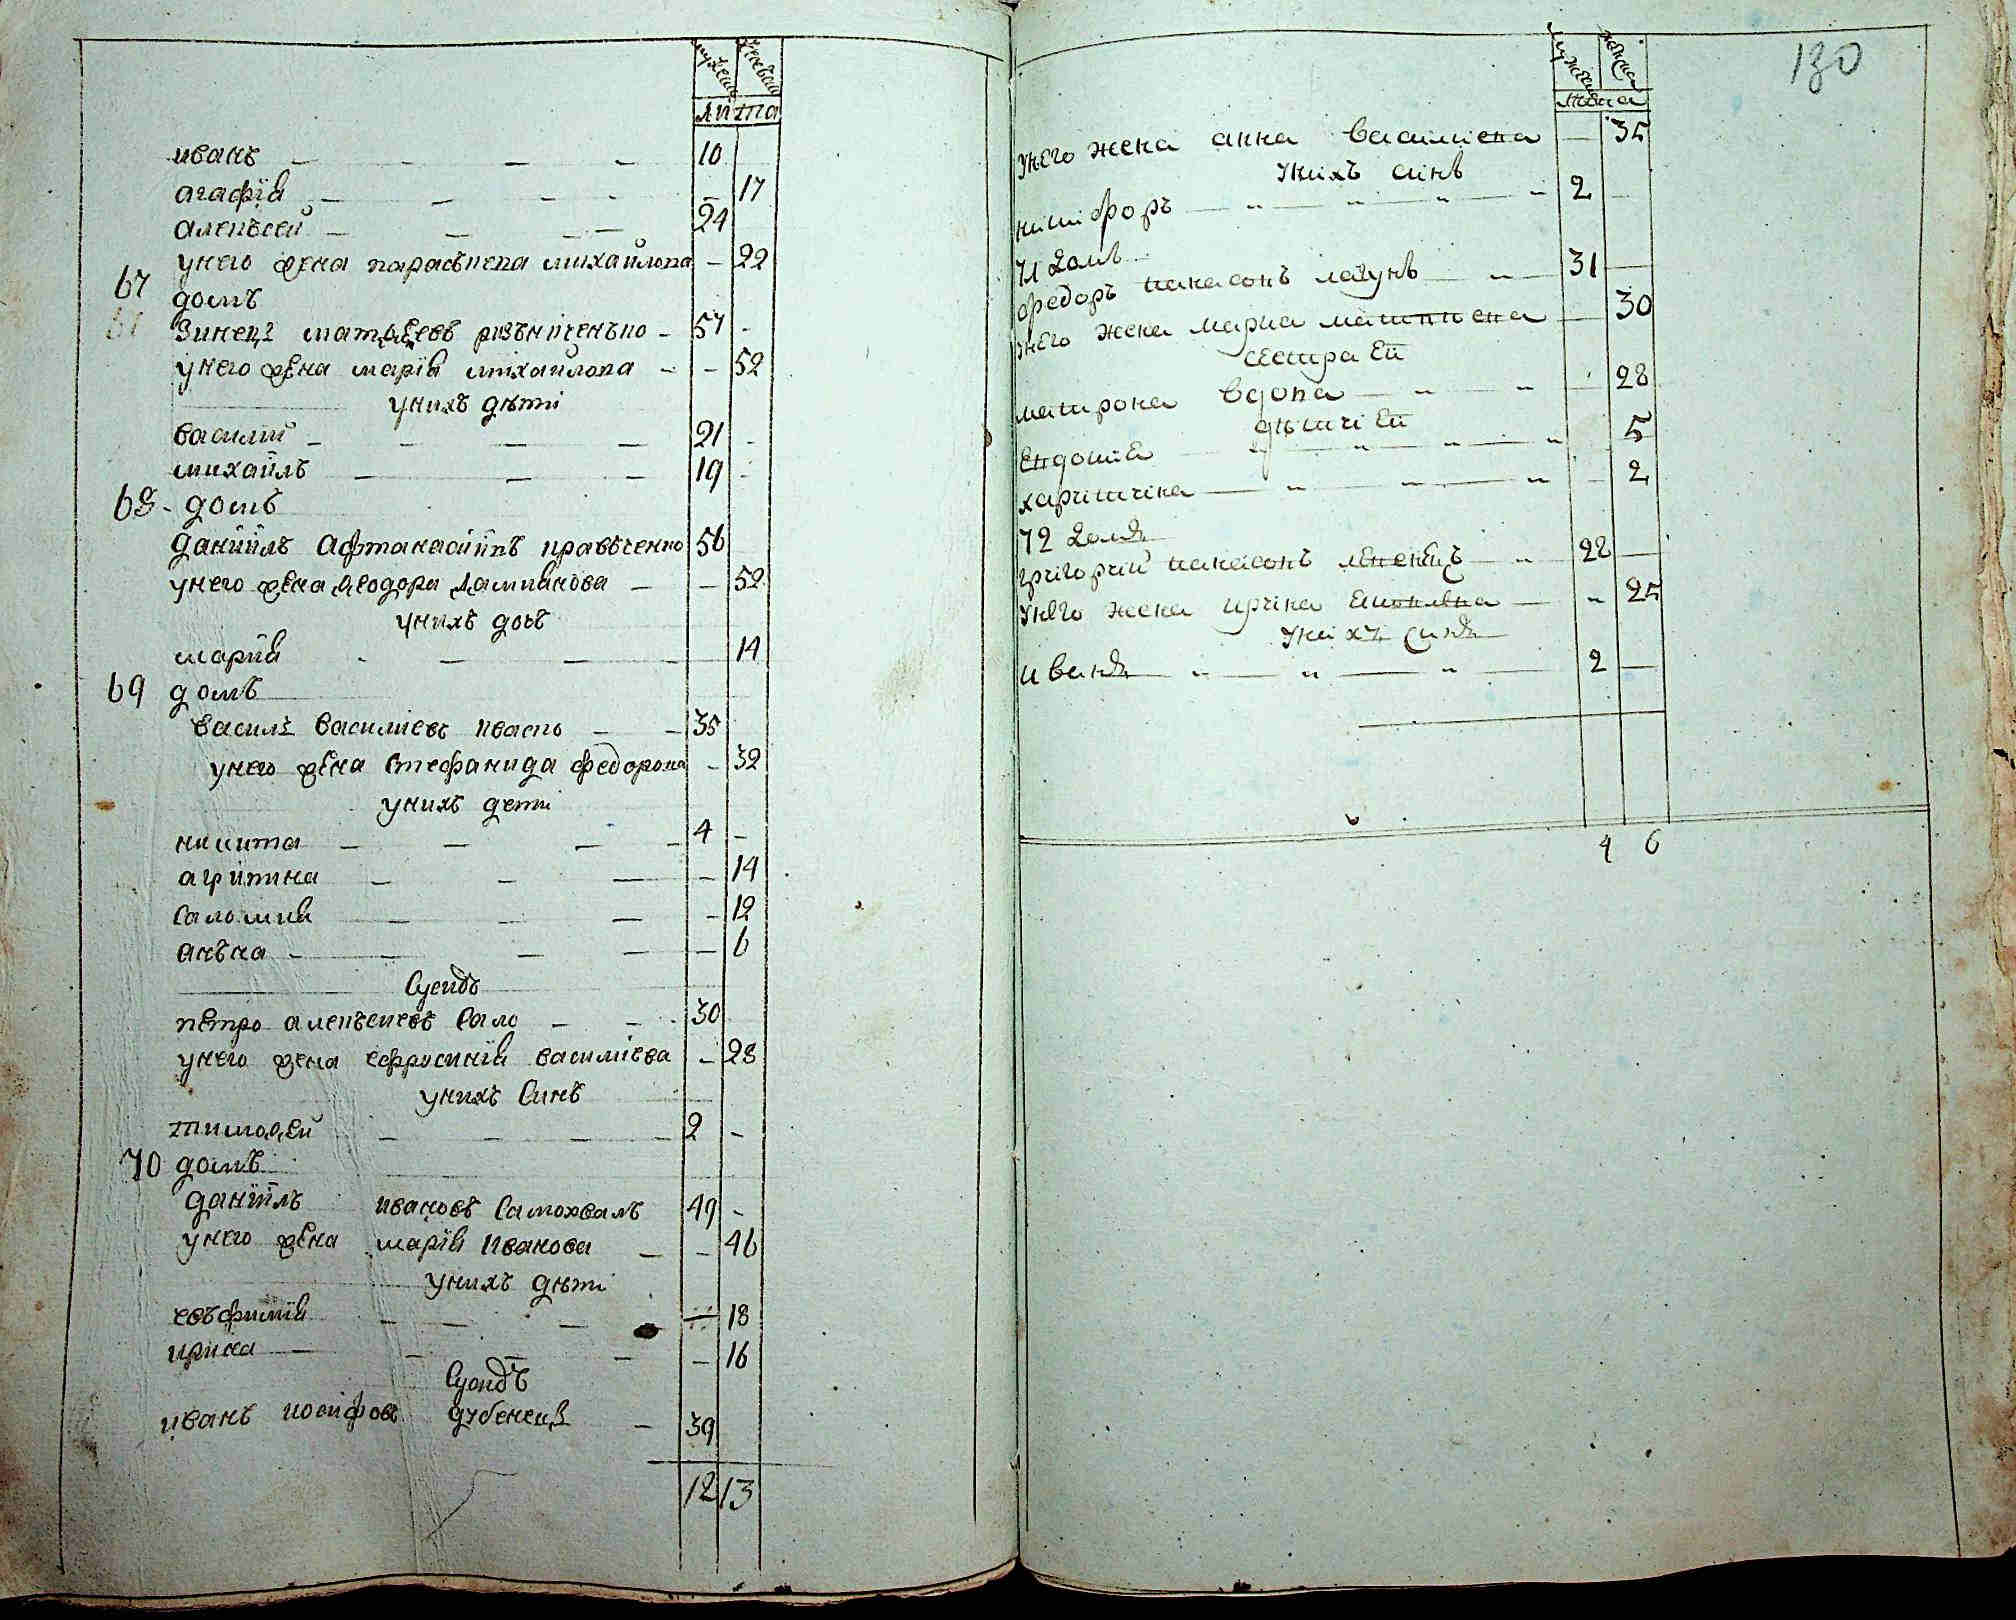 мужеска женска
лѣта
иванъ — — — — 10
агафіѣ — — — — — 17
алексѣй — — — — 24
унего жена парасъкева михайлова — 22
67 домъ
61 Зинецъ матѳеевъ — 57 -
унего жена маріѣ михайлова - — 52
унихъ дѣти
василий — — — — 21 -
михайлъ — — — 19 -
68 - домъ
даниилъ афтанасиевъ кравъченко 56
унего жена ѳеодора дамианова — — 52
унихъ дочь
мариѣ - — — — 14
69 домъ
василь василиевъ квасъ — — 35
унего жена стефанида федорова — 32
унихъ дети
никита — — — — 4 —
агрипина — — — — 14
саломиѣ — — — — 12
анъна — — — — — 6
Сусидъ
петро алексѣевъ Сало — - 30
унего жена ефросиніѣ василиева — 28
унихъ Синъ
тимоѳей — — — — 2 -
70 домъ
даниилъ ивановъ Самохвалъ 49 -
унего жена маріѣ иванова — — 46
унихъ дѣти
евъфиміѣ — — — — 18
ирина — — — — — 16
Сусидъ
иванъ иосифовъ дубенецъ — 39
12 13
130
мужеска женска
лѣта
унего жена анна василиева — 35
унихъ синъ
никифоръ — " " " - 2 —
71 домъ
федоръ панасовъ — " — 31 —
унего жена мариа — 30
сестра ей
матрона вдова — " " — 28
дѣти ей
евдокиѣ — " — " — " — " 5
харитина — " — " — " — 2
72 домъ
григорий панасовъ — " 22 —
унего жена ирина — " 25
унихъ синъ
иванъ — " — " — " — 2 —
4 6